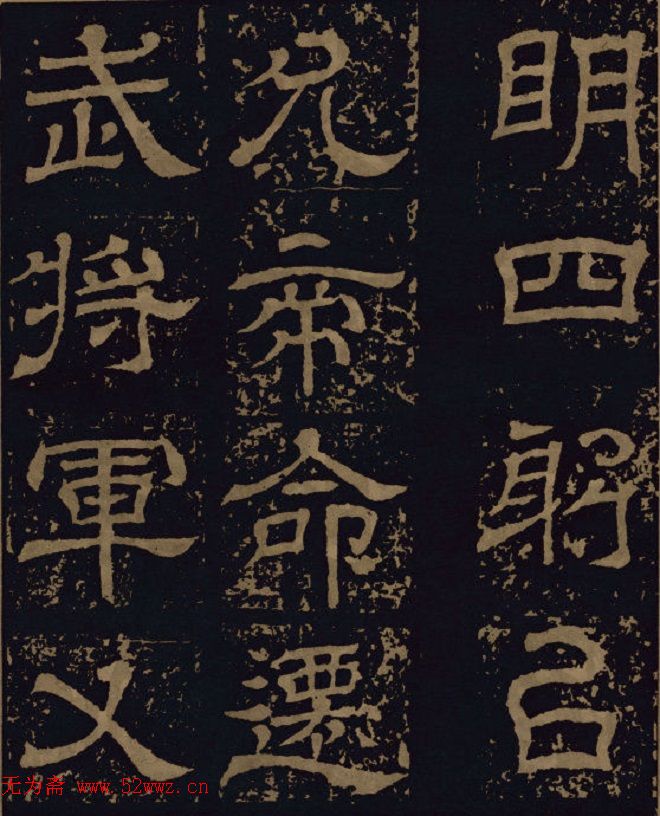 明四㠯
允帝命遷
武將軍又
无为斋 www.52wwz.cn